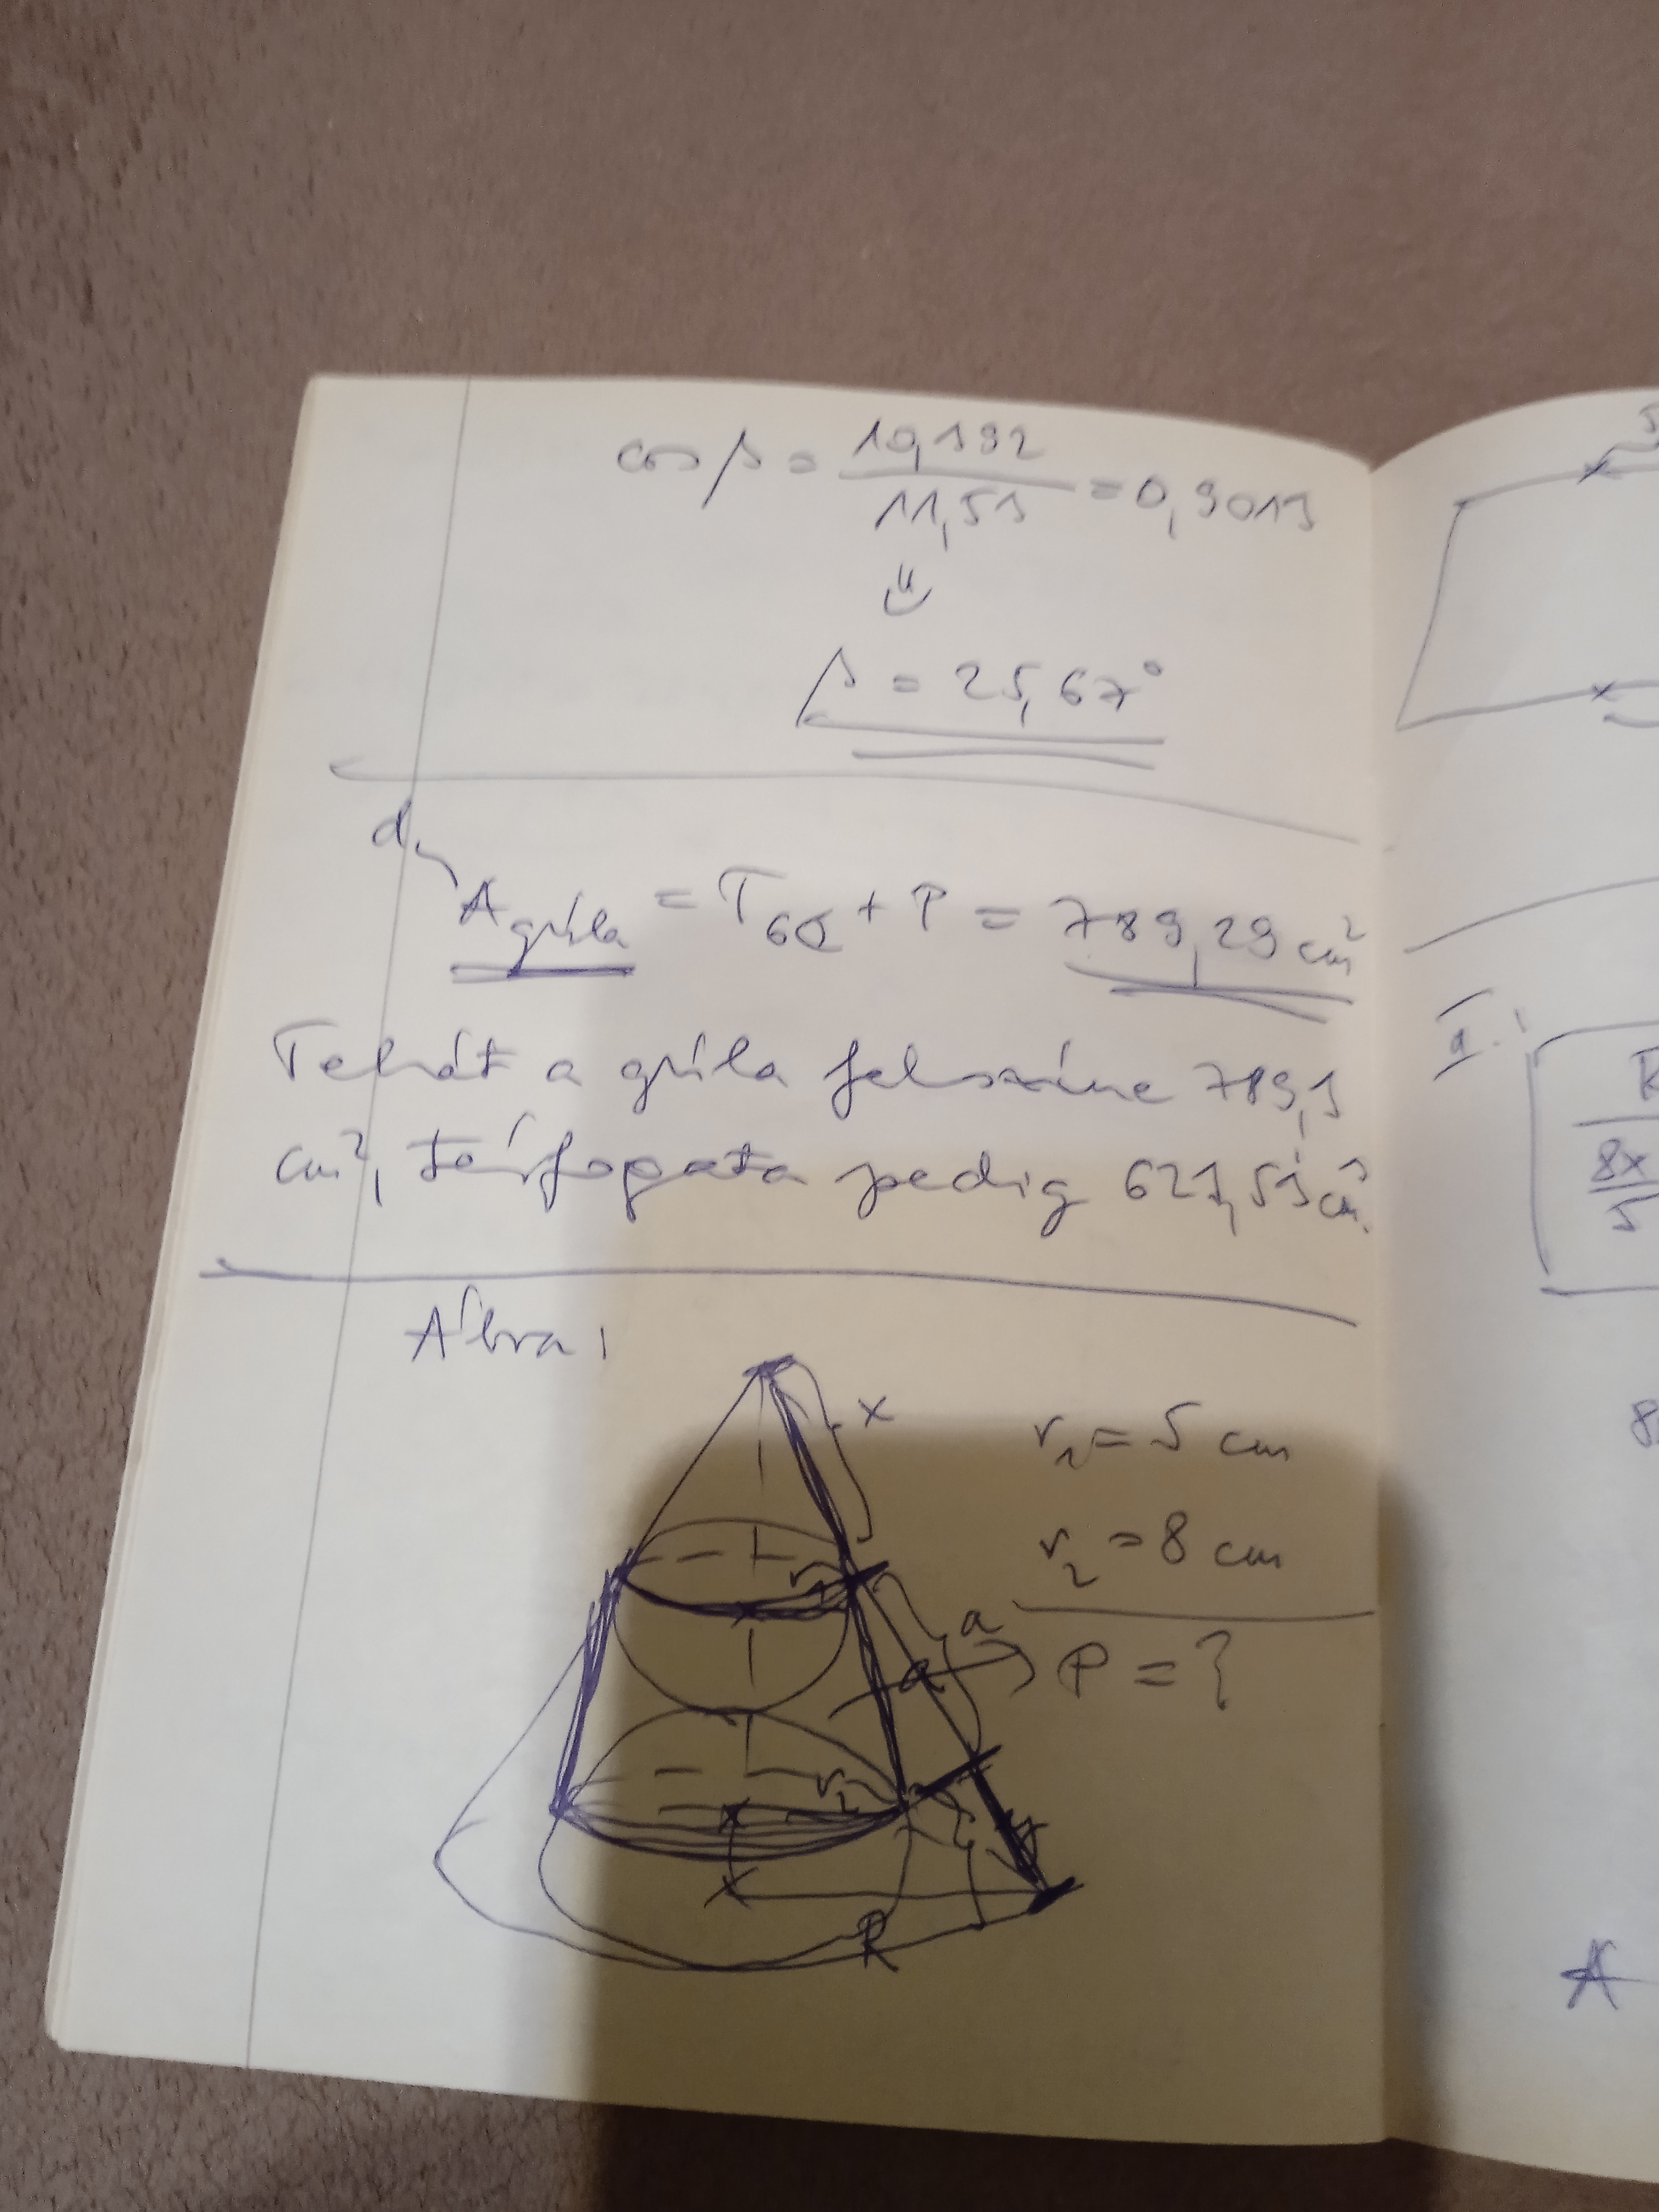 cos β = 10,392 / 11,53 = 0,9013
⇓
β = 25,67°
d,
A gúla = T6Δ + P = 789,29 cm²
Tehát a gúla felszíne 789,3
cm², térfogata pedig 621,53 cm³.
Ábra:
x
r₁ = 5 cm
r₂ = 8 cm
r₁
a
P = ?
r₂
R
5
a.
8x
5
8
A